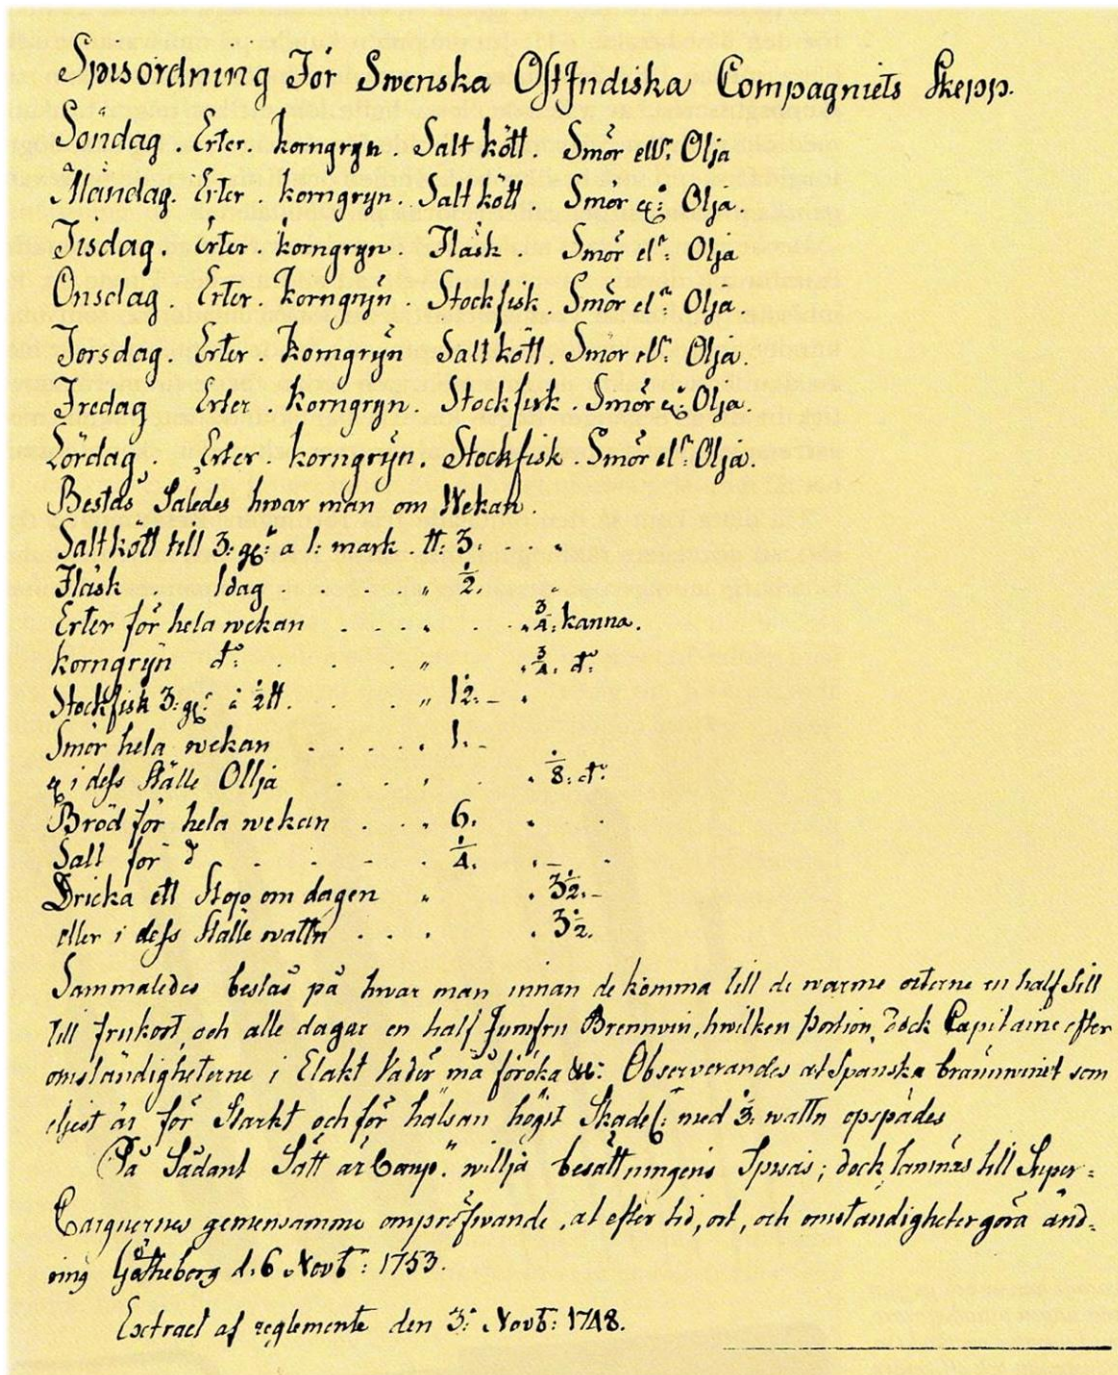 Spisordning För Swenska OstIndiska Compagniets Skepp.
Söndag. Erter. korngryn. Salt kött. Smör ellr: Olja
Måndag. Erter. korngryn. Salt kött. Smör Olja.
Tisdag. Erter. korngryn. Fläsk. Smör elr: Olja
Onsdag. Erter. korngryn. Stockfisk. Smör elr: Olja.
Torsdag. Erter. korngryn Salt kött. Smör ellr: Olja.
Fredag Erter. korngryn. Stockfisk. Smör Olja.
Lördag. Erter. korngryn. Stockfisk. Smör elr: Olja.
Bestås Således hwar man om Wekan.
Salt kött till 3: a 1: mark. tt: 3. . . .
Fläsk . 1 dag . . . . " ½.
Erter för hela wekan . . . . . . ¾. kanna.
korngryn do: . . . " . ¾. do:
Stockfisk 3: à ½ tt. . . " 1½. – .
Smör hela wekan . . . . . 1. –
i dess Ställe Ollja . . . . . ⅛. do:
Bröd för hela wekan . . . 6. . .
Salt för do . . . . . ¼. . – .
Dricka ett Stop om dagen " . 3½. –
eller i dess Ställe wattn . . . . 3½.
Sammaledes bestås på hwar man innan de komma till de warme orterne en half Sill
till frukost, och alle dagar en half Jumfru Brennvin, hwilken Portion, dock Capitaine efter
omständigheterne i Elakt Väder må föröka Observerandes at Spanska bränwinet som
eljest är för Starkt och för hälsan högst Skadel: med wattn opspädes
På Sådant Sätt är Comp: willja besättningens Spisas; dock lämnas till Super=
Carguernes gemensamme ompröfwande, at efter tid, ort, och omständigheter göra änd-
ring Götheborg d. 6 Novb: 1753.
Extract af reglemente den 3: Novb: 1748.